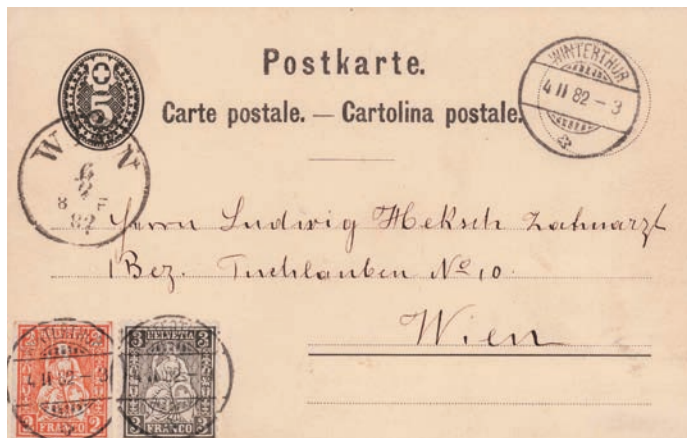 Postkarte.
Carte postale. — Cartolina postale.
5
WINTERTHUR
4 II 82 – 3
WIEN
8 F
82
Herrn Ludwig Heksch Zahnarzt
I Bez. Tuchlauben No 10.
Wien
WINTERTHUR
4 II 82 – 3
2 2
FRANCO
3 HELVETIA 3
II 82
3 FRANCO 3